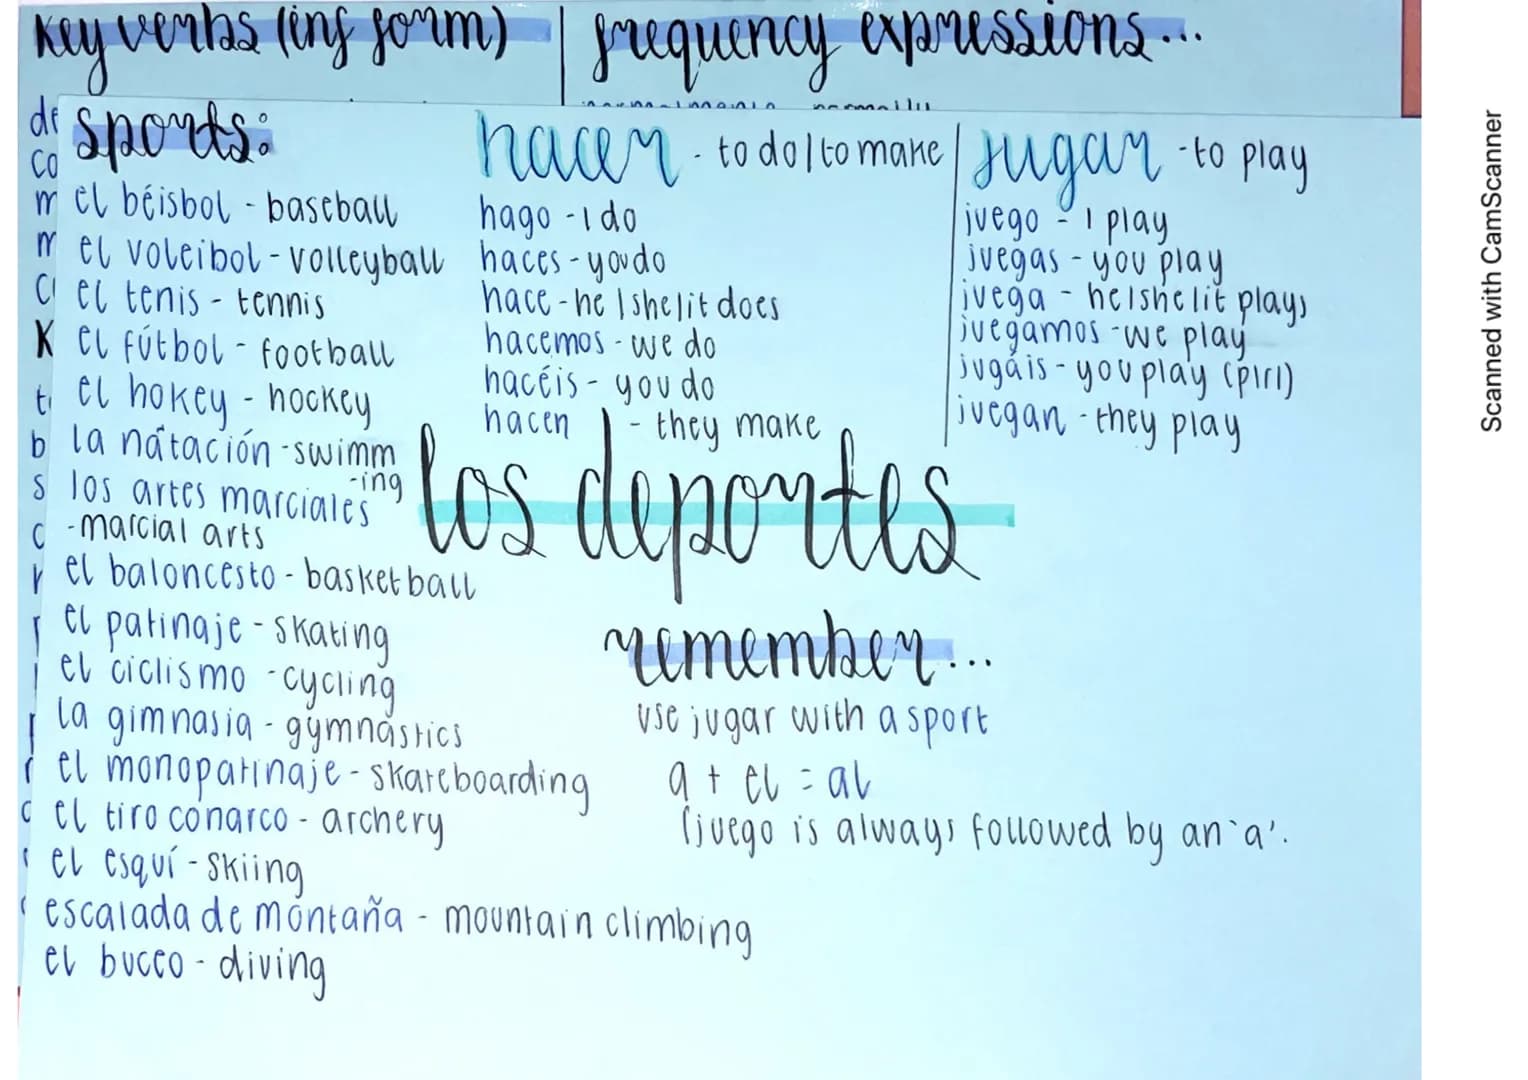 key verbs (inf form)
frequency expressions...
normalmente normally
sports:
el béisbol - baseball
el voleibol - volleyball
el tenis - tennis
el fútbol - football
el hokey - hockey
la natación - swimm
-ing
los artes marciales
- marcial arts
el baloncesto - basketball
el patinaje - skating
el ciclismo - cycling
la gimnasia - gymnastics
el monopatinaje - skateboarding
el tiro conarco - archery
el esquí - skiing
escalada de montaña - mountain climbing
el buceo - diving
hacer - to do/to make
hago - I do
haces - you do
hace - he/she/it does
hacemos - we do
hacéis - you do
hacen - they make
jugar - to play
juego - I play
juegas - you play
juega - he/she/it plays
juegamos - we play
jugáis - you play (plrl)
juegan - they play
los deportes
remember...
use jugar with a sport
a + el = al
(juego is always followed by an 'a'.
Scanned with CamScanner